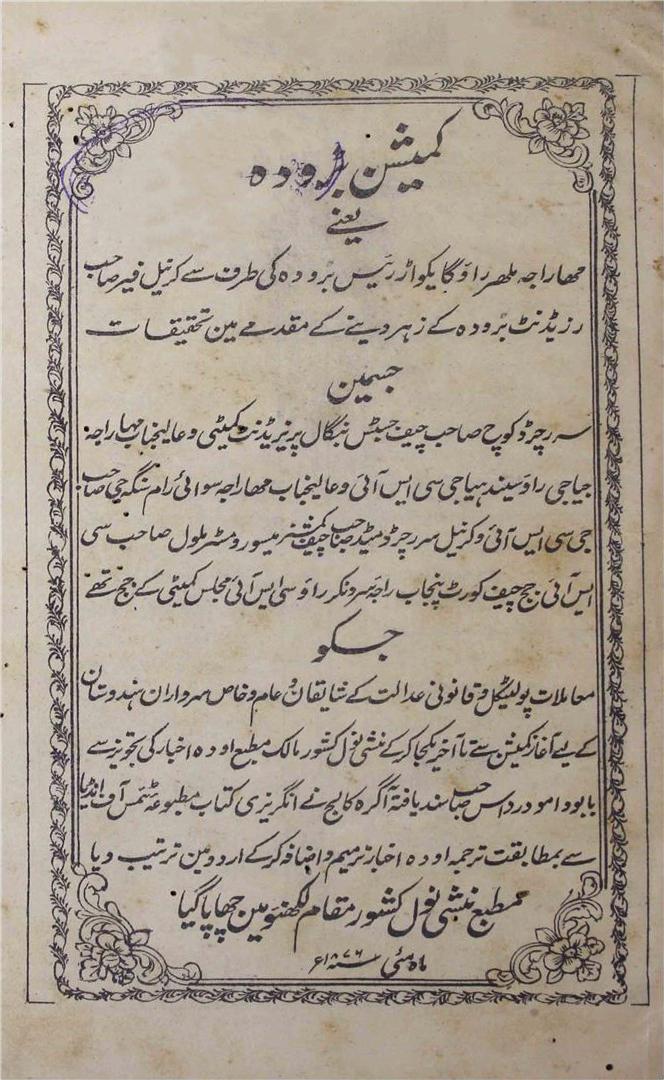 کمیشن بڑودہ
یعنے
مھاراجہ ملھر راؤ گایکواڑ رئیس بڑودہ کی طرف سے کرنیل فیر صاحب
رزیڈنٹ بڑودہ کے زہر دینے کے مقدمے مین تحقیقات
جسمین
سر رچرڈ کوچ صاحب چیف جسٹس بنگال پریزیڈنٹ کمیٹی و عالیجناب مہاراجہ
جیاجی راؤ سیندہیا جی سی ایس آئی و عالیجناب مھاراجہ سوائی رام سنگہ جی صاحب
جی سی ایس آئی و کرنیل سر رچرڈ میڈ صاحب چیف کمشنر میسور و مسٹر ملول صاحب سی
ایس آئی جج چیف کورٹ پنجاب راجہ سر ونکر راؤ سی ایس آئی مجلس کمیٹی کے جج تھے
جسکو
معاملات پولیٹکل و قانونی عدالت کے شایقان و عام و خاص سرداران ہندوستان
کے لیے آغاز کمیشن سے تا آخر یکجا کر کے منشی نول کشور مالک مطبع اودہ اخبار کی تجویز سے
بابو دامودر داس صاحب سند یافتہ آگرہ کالج نے انگریزی کتاب مطبوعہ ٹیمس آف انڈیا
سے بمطابقت ترجمہ اودہ اخبار ترمیم و اضافہ کر کے اردو مین ترتیب دیا
مطبع منشی نول کشور مقام لکھنؤ مین چھاپا گیا
ماہ مئی سنہ ۱۸۷۶ع